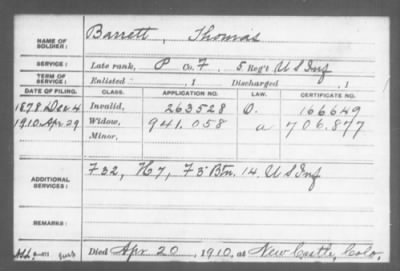 NAME OF SOLDIER: Barrett, Thomas
SERVICE: Late rank, P Co. F, 5 Reg't U S Inf
TERM OF SERVICE: Enlisted , 1 Discharged , 1
DATE OF FILING. CLASS. APPLICATION NO. LAW. CERTIFICATE NO.
1878 Dec 4 Invalid, 263528 O. 166649
1910 Apr 29 Widow, 941.058 a 706.877
Minor,
ADDITIONAL SERVICES: F 32, H 7, F 3" Btn. 14. U S Inf
REMARKS:
Died Apr 20, 1910, at New Castle, Colo.